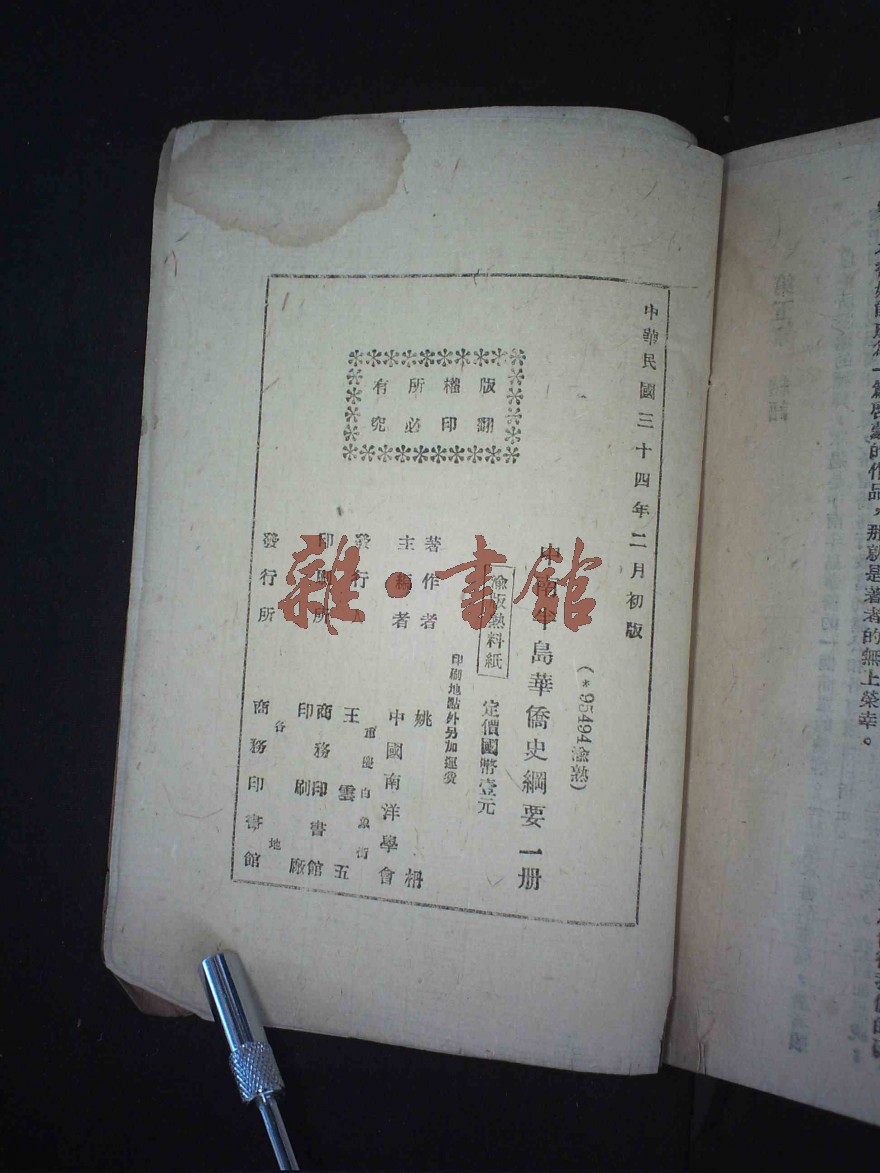 中華民國三十四年二月初版
(*95494渝熱)
中南半島華僑史綱要一册
渝版熱料紙
定價國幣壹元
印刷地點外另加運費
著作者 姚枬
主編者 中國南洋學會
發行人 王雲五
重慶白象街
印刷所 商務印書館
印刷廠
發行所 商務印書館
各地
版權所有
翻印必究
雜·書館
作品,那就是著者的無上榮幸。